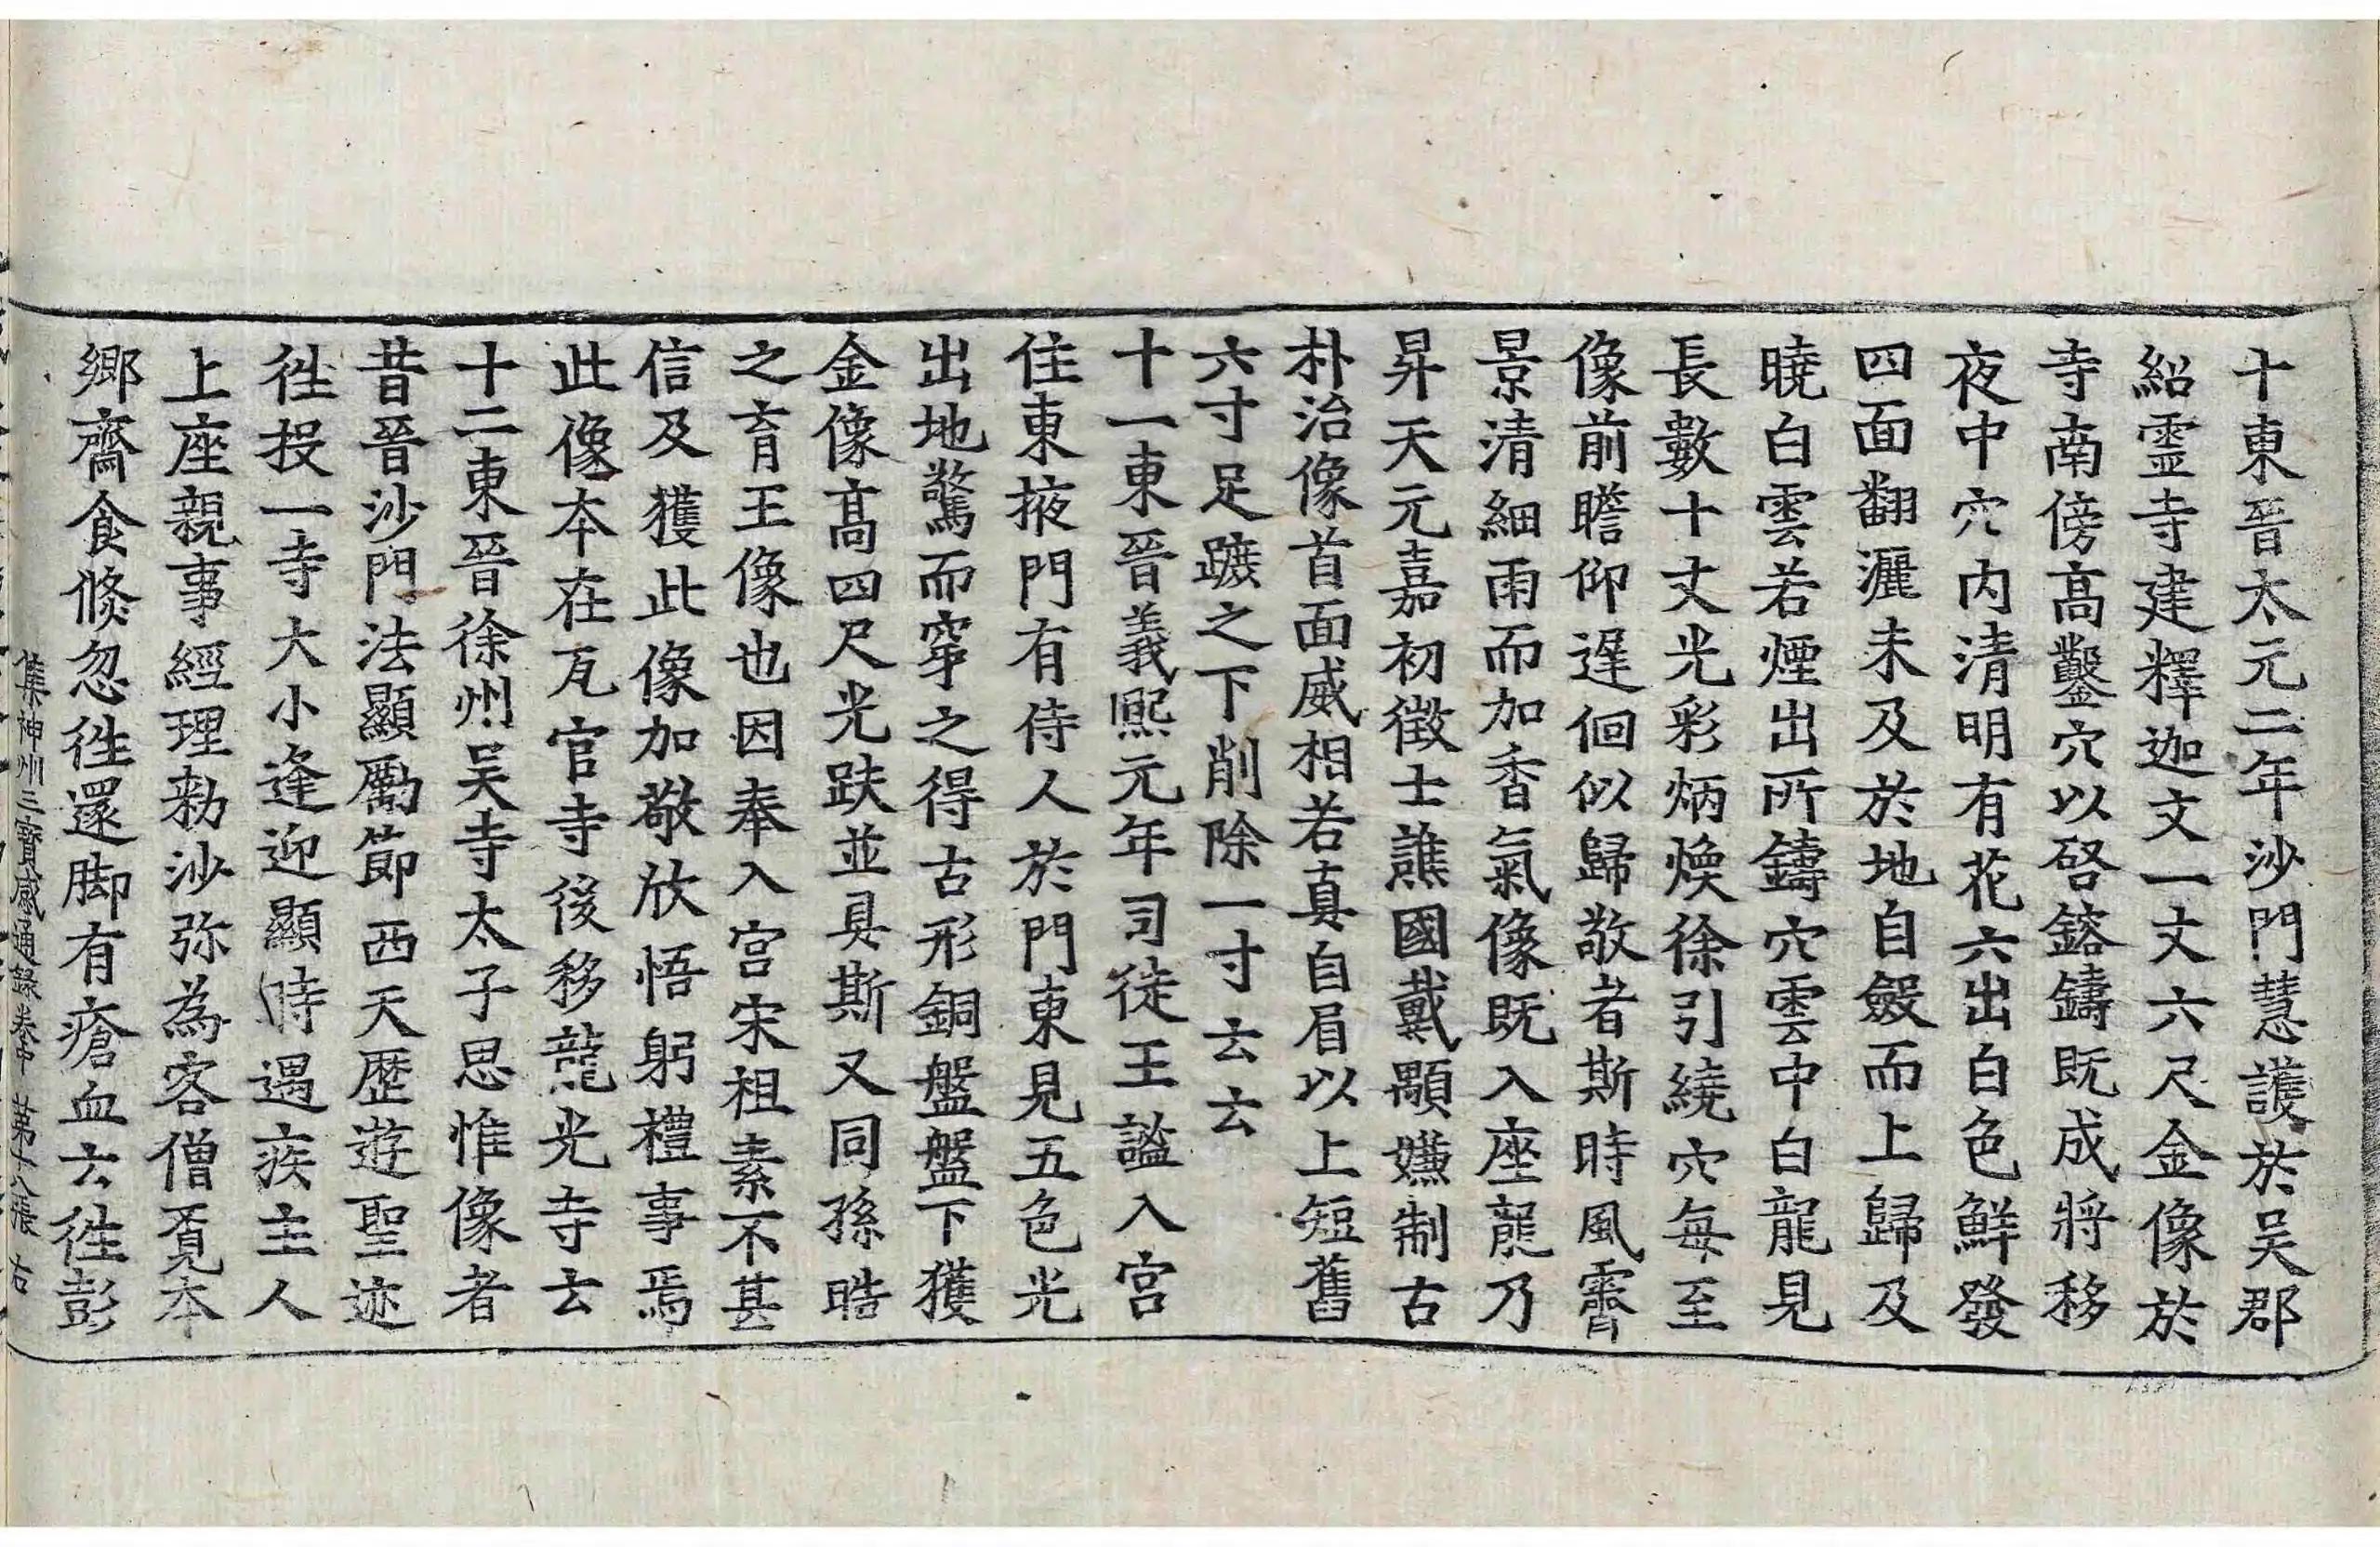 十東晉太元二年沙門慧護於吴郡
紹靈寺建釋迦文一丈六尺金像於
寺南傍高鑿穴以啓鎔鑄既成將移
夜中穴内清明有花六出白色鮮發
四面翻灑未及於地自斂而上歸及
曉白雲若煙出所鑄穴雲中白龍見
長數十丈光彩炳煥徐引繞穴每至
像前瞻仰遲佪似歸敬者斯時風霽
景清細雨而加香氣像既入座龍乃
昇天元嘉初徵士譙國戴顒嫌制古
朴治像首面威相若真自眉以上短舊
六寸足蹠之下削除一寸云云
十一東晉義熙元年司徒王謐入宫
住東掖門有侍人於門東見五色光
出地驚而穿之得古形銅盤盤下獲
金像高四尺光趺並具斯又同孫晧
之育王像也因奉入宫宋祖素不甚
信及獲此像加敬欣悟躬禮事焉
此像夲在瓦官寺後移龍光寺云
十二東晉徐州吴寺太子思惟像者
昔晉沙門法顯勵節西天歷遊聖迹
徃投一寺大小逢迎顯時遇疾主人
上座親事經理勑沙弥為客僧覓夲
鄉齋食倏忽徃還脚有瘡血云徃彭
集神州三寶感通録卷中 苐十八張 右